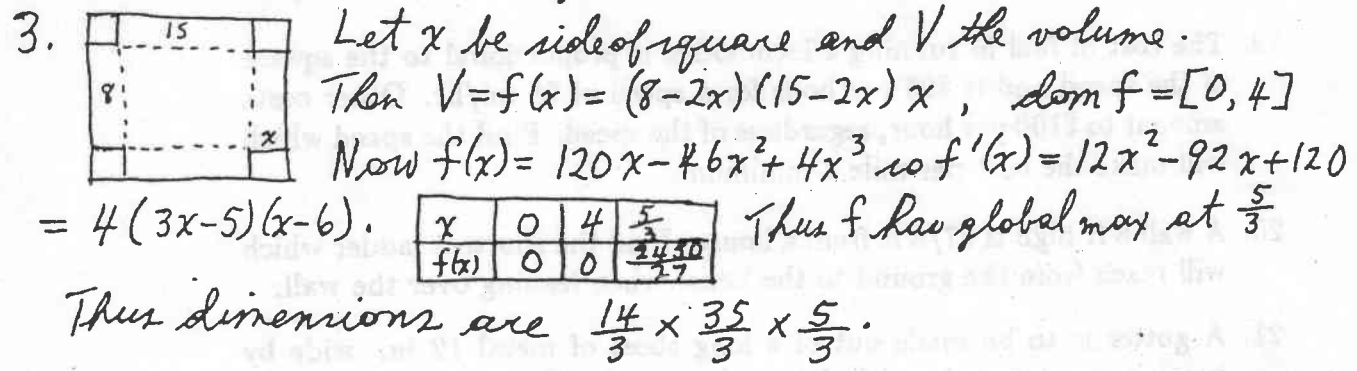 3. 15 Let x be side of square and V the volume.
8 Then V = f(x) = (8-2x)(15-2x)x, dom f = [0, 4]
x Now f(x) = 120x - 46x² + 4x³ so f'(x) = 12x² - 92x + 120
= 4(3x-5)(x-6). x 0 4 5/3 Thus f has global max at 5/3
f(x) 0 0 2450/27
Thus dimensions are 14/3 x 35/3 x 5/3.